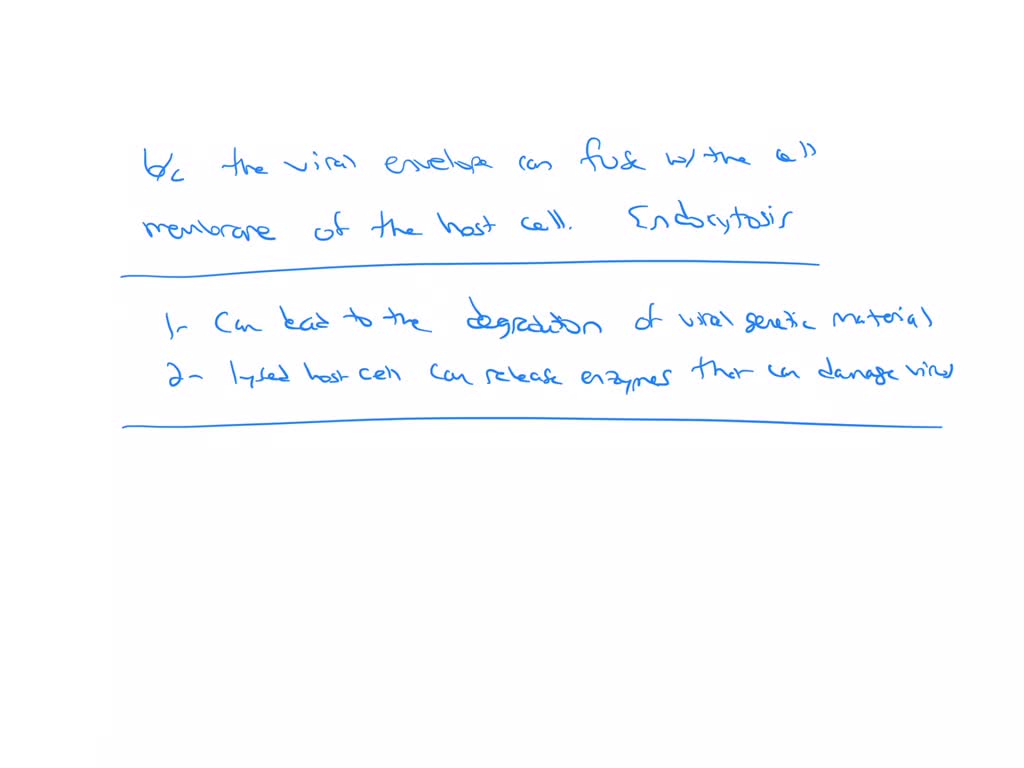 b/c the viral envelope can fuse w/ the cell
membrane of the host cell. Endocytosis
1- Can lead to the degradation of viral genetic material
2- lysed host cell can release enzymes that can damage virus